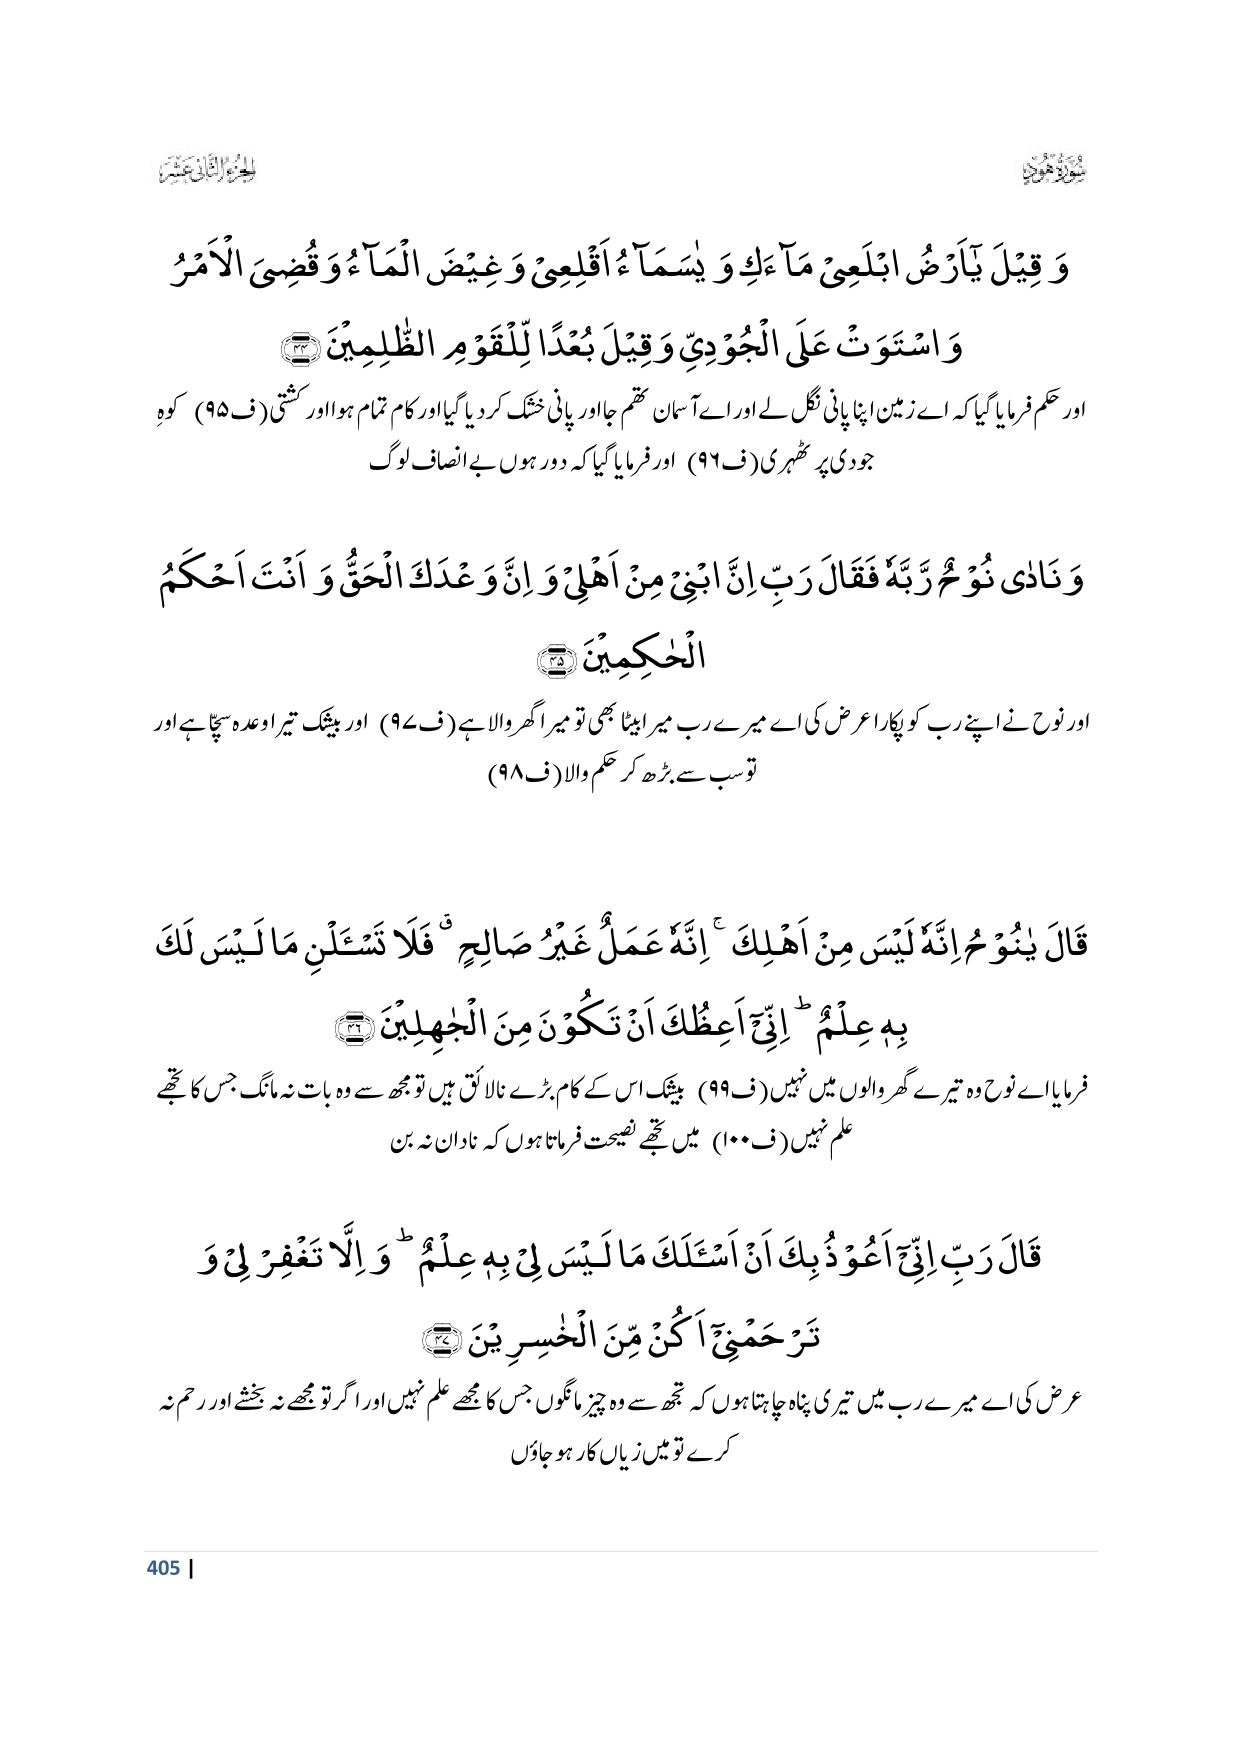 سُوۡرَۃُ ھُوۡدٍ
الجزء الثانی عشر
وَ قِیۡلَ یٰۤاَرۡضُ ابۡلَعِیۡ مَآءَکِ وَ یٰسَمَآءُ اَقۡلِعِیۡ وَ غِیۡضَ الۡمَآءُ وَ قُضِیَ الۡاَمۡرُ
وَ اسۡتَوَتۡ عَلَی الۡجُوۡدِیِّ وَ قِیۡلَ بُعۡدًا لِّلۡقَوۡمِ الظّٰلِمِیۡنَ ﴿۴۴﴾
اور حکم فرمایا گیا کہ اے زمین اپنا پانی نگل لے اور اے آسمان تھم جا اور پانی خشک کر دیا گیا اور کام تمام ہوا اور کشتی (ف۹۵) کوہِ
جودی پر ٹھہری (ف۹۶) اور فرمایا گیا کہ دور ہوں بے انصاف لوگ
وَ نَادٰی نُوۡحٌ رَّبَّہٗ فَقَالَ رَبِّ اِنَّ ابۡنِیۡ مِنۡ اَھۡلِیۡ وَ اِنَّ وَعۡدَکَ الۡحَقُّ وَ اَنۡتَ اَحۡکَمُ
الۡحٰکِمِیۡنَ ﴿۴۵﴾
اور نوح نے اپنے رب کو پکارا عرض کی اے میرے رب میرا بیٹا بھی تو میرا گھر والا ہے (ف۹۷) اور بیشک تیرا وعدہ سچّا ہے اور
تو سب سے بڑھ کر حکم والا (ف۹۸)
قَالَ یٰنُوۡحُ اِنَّہٗ لَیۡسَ مِنۡ اَھۡلِکَ ۚ اِنَّہٗ عَمَلٌ غَیۡرُ صَالِحٍ ٭ۖ فَلَا تَسۡـَٔلۡنِ مَا لَـیۡسَ لَکَ
بِہٖ عِلۡمٌ ؕ اِنِّیۡۤ اَعِظُکَ اَنۡ تَکُوۡنَ مِنَ الۡجٰھِلِیۡنَ ﴿۴۶﴾
فرمایا اے نوح وہ تیرے گھر والوں میں نہیں (ف۹۹) بیشک اس کے کام بڑے نالائق ہیں تو مجھ سے وہ بات نہ مانگ جس کا تجھے
علم نہیں (ف۱۰۰) میں تجھے نصیحت فرماتا ہوں کہ نادان نہ بن
قَالَ رَبِّ اِنِّیۡۤ اَعُوۡذُ بِکَ اَنۡ اَسۡـَٔلَکَ مَا لَـیۡسَ لِیۡ بِہٖ عِلۡمٌ ؕ وَ اِلَّا تَغۡفِرۡ لِیۡ وَ
تَرۡحَمۡنِیۡۤ اَکُنۡ مِّنَ الۡخٰسِرِیۡنَ ﴿۴۷﴾
عرض کی اے میرے رب میں تیری پناہ چاہتا ہوں کہ تجھ سے وہ چیز مانگوں جس کا مجھے علم نہیں اور اگر تو مجھے نہ بخشے اور رحم نہ
کرے تو میں زیاں کار ہو جاؤں
405 |